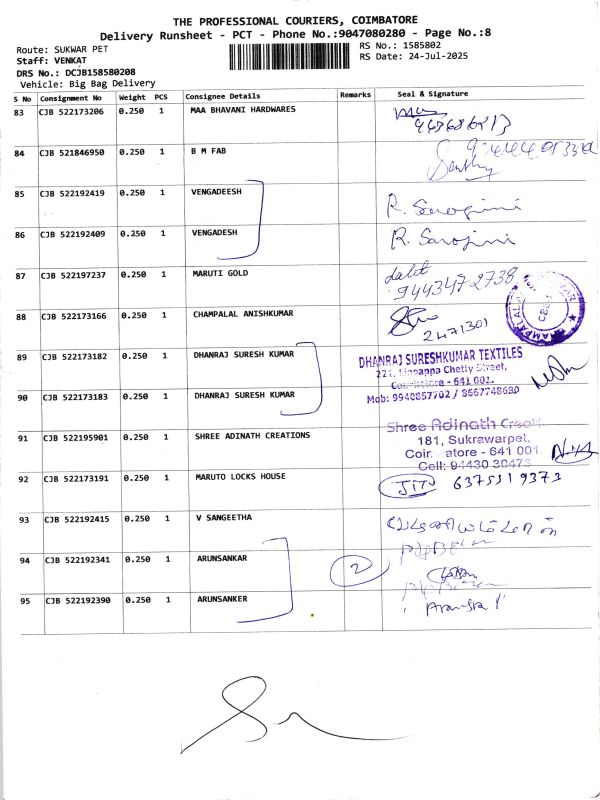 THE PROFESSIONAL COURIERS, COIMBATORE
Delivery Runsheet - PCT - Phone No.:9047080280 - Page No.:8
Route: SUKWAR PET
RS No.: 1585802
Staff: VENKAT
RS Date: 24-Jul-2025
DRS No.: DCJB158580208
Vehicle: Big Bag Delivery
S No Consignment No Weight PCS Consignee Details Remarks Seal & Signature
83 CJB 522173206 0.250 1 MAA BHAVANI HARDWARES
84 CJB 521846950 0.250 1 B M FAB
85 CJB 522192419 0.250 1 VENGADEESH R. Sarojini
86 CJB 522192409 0.250 1 VENGADESH R. Sarojini
87 CJB 522197237 0.250 1 MARUTI GOLD lalit
9443472738
88 CJB 522173166 0.250 1 CHAMPALAL ANISHKUMAR 2471301
89 CJB 522173182 0.250 1 DHANRAJ SURESH KUMAR DHANRAJ SURESHKUMAR TEXTILES
221, Lingappa Chetty Street,
Coimbatore - 641 001.
90 CJB 522173183 0.250 1 DHANRAJ SURESH KUMAR Mob: 9940857702 / 8667748690
91 CJB 522195901 0.250 1 SHREE ADINATH CREATIONS Shree Adinath
181, Sukrawarpet,
Coim atore - 641 001
Cell: 94430 30473
92 CJB 522173191 0.250 1 MARUTO LOCKS HOUSE JITU 6375519373
93 CJB 522192415 0.250 1 V SANGEETHA
94 CJB 522192341 0.250 1 ARUNSANKAR 2
95 CJB 522192390 0.250 1 ARUNSANKER